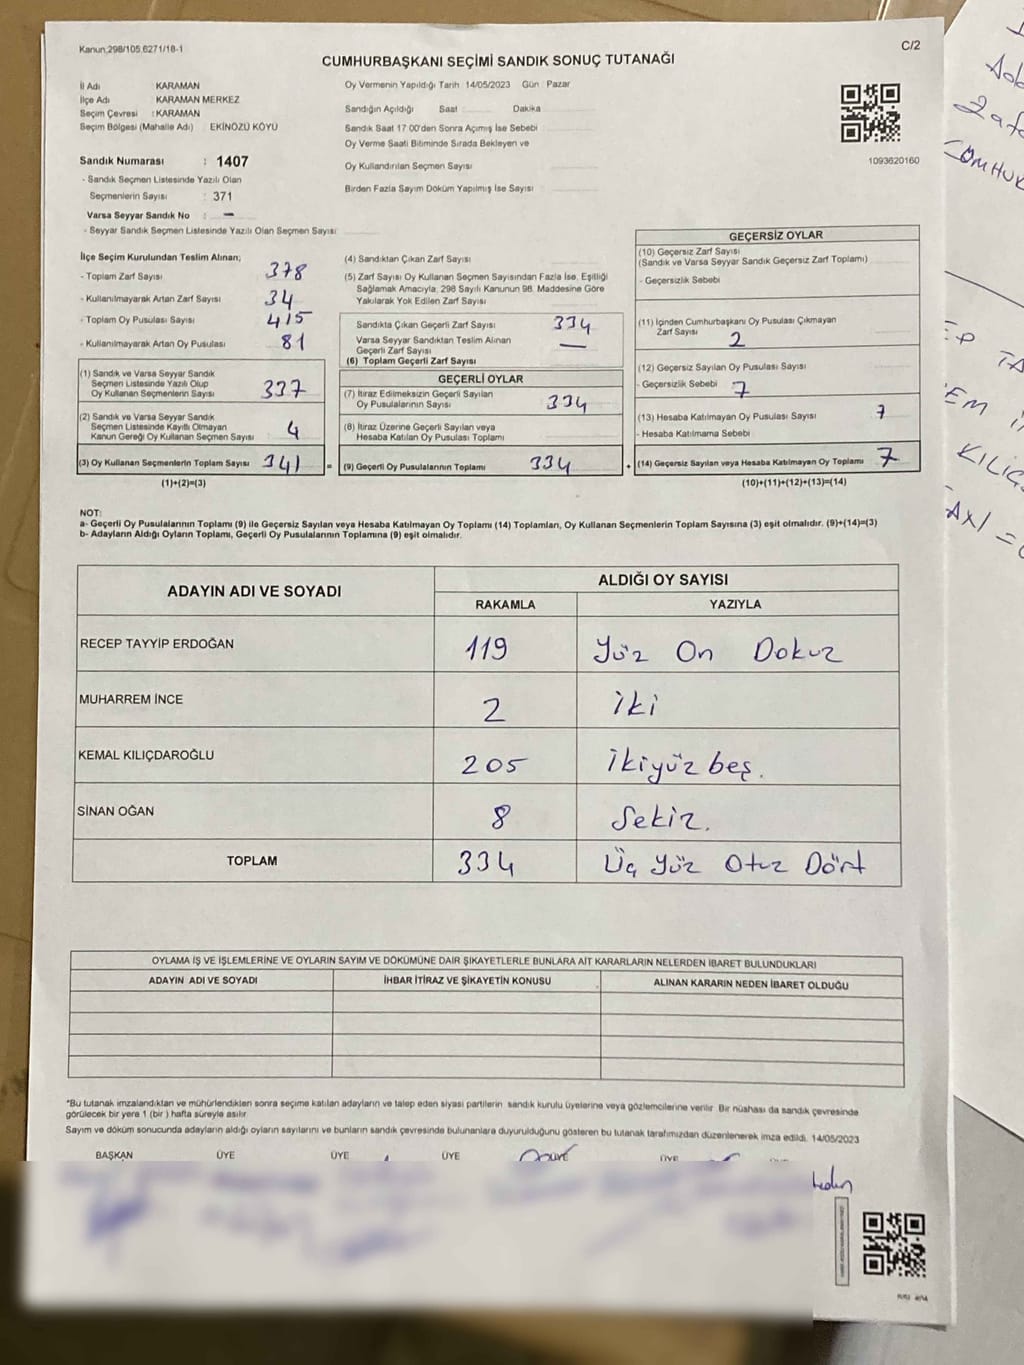 Kanun:298/105,6271/18-1
C/2
CUMHURBAŞKANI SEÇİMİ SANDIK SONUÇ TUTANAĞI
İl Adı KARAMAN
İlçe Adı : KARAMAN MERKEZ
Seçim Çevresi : KARAMAN
Seçim Bölgesi (Mahalle Adı) EKİNÖZÜ KÖYÜ
Sandık Numarası : 1407
- Sandık Seçmen Listesinde Yazılı Olan
Seçmenlerin Sayısı : 371
Varsa Seyyar Sandık No : —
- Seyyar Sandık Seçmen Listesinde Yazılı Olan Seçmen Sayısı
Oy Vermenin Yapıldığı Tarih 14/05/2023 Gün : Pazar
Sandığın Açıldığı Saat Dakika
Sandık Saat 17 00'den Sonra Açımış İse Sebebi
Oy Verme Saati Bitiminde Sırada Bekleyen ve
Oy Kullandırılan Seçmen Sayısı
Birden Fazla Sayım Döküm Yapılmış İse Sayısı
1093620160
İlçe Seçim Kurulundan Teslim Alınan;
- Toplam Zarf Sayısı 378
- Kullanılmayarak Artan Zarf Sayısı 34
- Toplam Oy Pusulası Sayısı 415
- Kullanılmayarak Artan Oy Pusulası 81
(1) Sandık ve Varsa Seyyar Sandık
Seçmen Listesinde Yazılı Olup
Oy Kullanan Seçmenlerin Sayısı 337
(2) Sandık ve Varsa Seyyar Sandık
Seçmen Listesinde Kayıtlı Olmayan
Kanun Gereği Oy Kullanan Seçmen Sayısı 4
(3) Oy Kullanan Seçmenlerin Toplam Sayısı 341 =
(1)+(2)=(3)
(4) Sandıktan Çıkan Zarf Sayısı
(5) Zarf Sayısı Oy Kullanan Seçmen Sayısından Fazla İse, Eşitliği
Sağlamak Amacıyla, 298 Sayılı Kanunun 98. Maddesine Göre
Yakılarak Yok Edilen Zarf Sayısı
Sandıkta Çıkan Geçerli Zarf Sayısı 334
Varsa Seyyar Sandıktan Teslim Alınan
Geçerli Zarf Sayısı —
(6) Toplam Geçerli Zarf Sayısı
GEÇERLİ OYLAR
(7) İtiraz Edilmeksizin Geçerli Sayılan
Oy Pusulalarının Sayısı 334
(8) İtiraz Üzerine Geçerli Sayılan veya
Hesaba Katılan Oy Pusulası Toplamı
(9) Geçerli Oy Pusulalarının Toplamı 334 +
GEÇERSİZ OYLAR
(10) Geçersiz Zarf Sayısı
(Sandık ve Varsa Seyyar Sandık Geçersiz Zarf Toplamı)
- Geçersizlik Sebebi
(11) İçinden Cumhurbaşkanı Oy Pusulası Çıkmayan
Zarf Sayısı 2
(12) Geçersiz Sayılan Oy Pusulası Sayısı
- Geçersizlik Sebebi 7
(13) Hesaba Katılmayan Oy Pusulası Sayısı 7
- Hesaba Katılmama Sebebi
(14) Geçersiz Sayılan veya Hesaba Katılmayan Oy Toplamı 7
(10)+(11)+(12)+(13)=(14)
NOT:
a- Geçerli Oy Pusulalarının Toplamı (9) ile Geçersiz Sayılan veya Hesaba Katılmayan Oy Toplamı (14) Toplamları, Oy Kullanan Seçmenlerin Toplam Sayısına (3) eşit olmalıdır. (9)+(14)=(3)
b- Adayların Aldığı Oyların Toplamı, Geçerli Oy Pusulalarının Toplamına (9) eşit olmalıdır.
ADAYIN ADI VE SOYADI
ALDIĞI OY SAYISI
RAKAMLA YAZIYLA
RECEP TAYYİP ERDOĞAN 119 Yüz On Dokuz
MUHARREM İNCE 2 iki
KEMAL KILIÇDAROĞLU 205 ikiyüz beş.
SİNAN OĞAN 8 Sekiz.
TOPLAM 334 Üç Yüz Otuz Dört
OYLAMA İŞ VE İŞLEMLERİNE VE OYLARIN SAYIM VE DÖKÜMÜNE DAİR ŞİKAYETLERLE BUNLARA AİT KARARLARIN NELERDEN İBARET BULUNDUKLARI
ADAYIN ADI VE SOYADI İHBAR İTİRAZ VE ŞİKAYETİN KONUSU ALINAN KARARIN NEDEN İBARET OLDUĞU
*Bu tutanak imzalandıktan ve mühürlendikten sonra seçime katılan adayların ve talep eden siyasi partilerin sandık kurulu üyelerine veya gözlemcilerine verilir. Bir nüshası da sandık çevresinde
görülecek bir yere 1 (bir ) hafta süreyle asılır
Sayım ve döküm sonucunda adayların aldığı oyların sayılarını ve bunların sandık çevresinde bulunanlara duyurulduğunu gösteren bu tutanak tarafımızdan düzenlenerek imza edildi. 14/05/2023
BAŞKAN ÜYE ÜYE ÜYE ÜYE
TA
KILIÇ